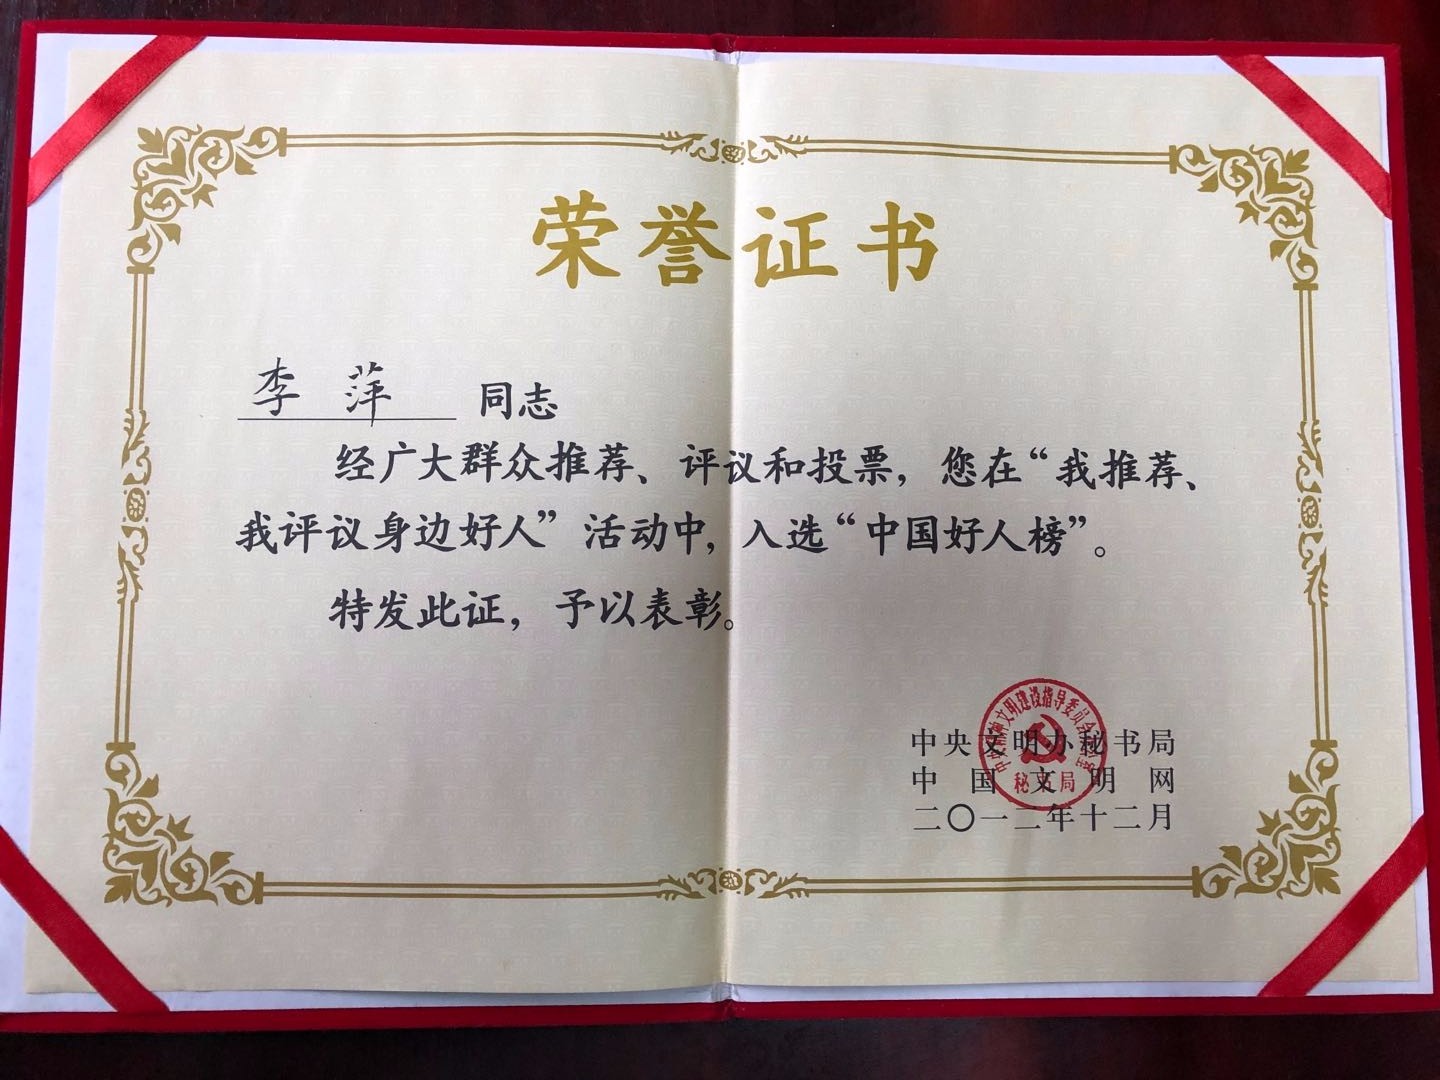 荣誉证书
李萍 同志
经广大群众推荐、评议和投票，您在“我推荐、
我评议身边好人”活动中，入选“中国好人榜”。
特发此证，予以表彰。
中央文明办秘书局
中国文明网
二〇一二年十二月
中央精神文明建设指导委员会办公室
秘书局